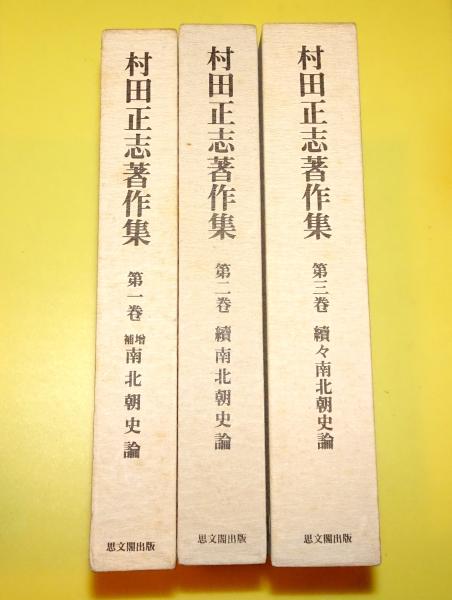 村田正志著作集
第一巻
増補
南北朝史論
思文閣出版
村田正志著作集
第二巻
續南北朝史論
思文閣出版
村田正志著作集
第三巻
續々南北朝史論
思文閣出版